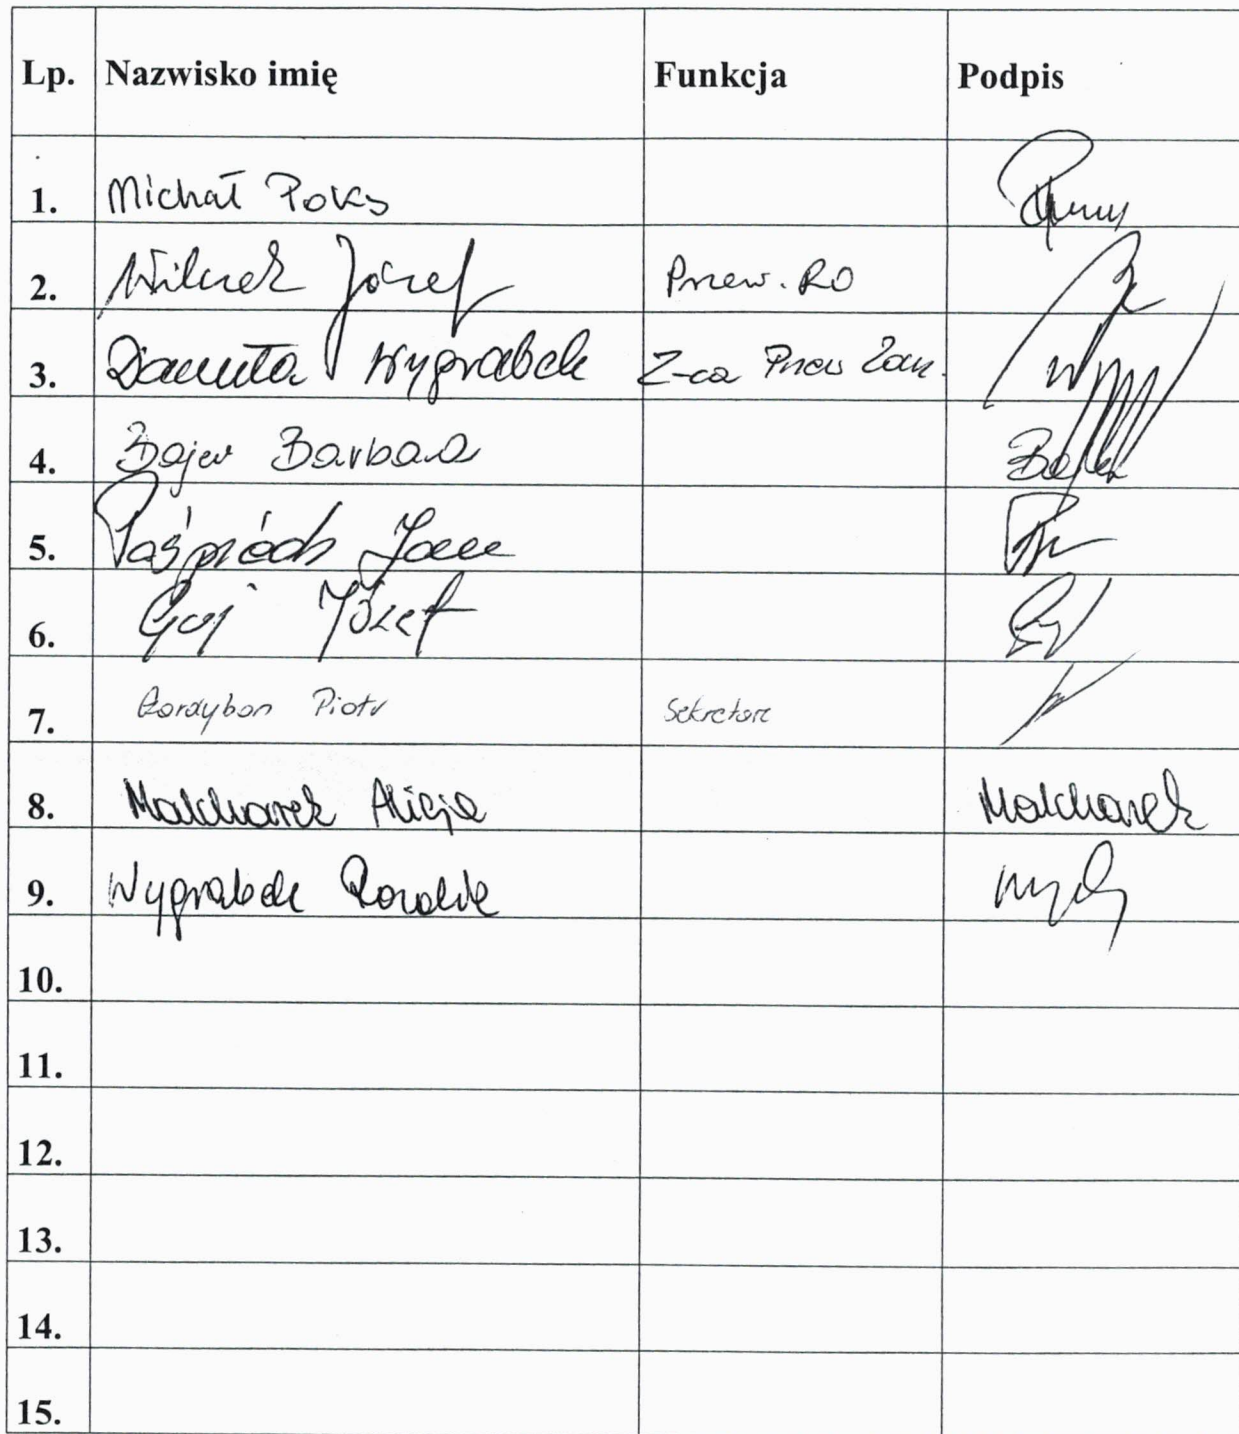 Lp. Nazwisko imię Funkcja Podpis
1. Michał Poks
2. Wilczek Józef Przew. RO
3. Danuta Wygrabek Z-ca Przew Zam.
4. Bajer Barbara
5. Paśpiech Jan
6. Guj Józef
7. Piotr Sekretarz
8. Malcharek Alicja Malcharek
9. Wygrabek
10.
11.
12.
13.
14.
15.